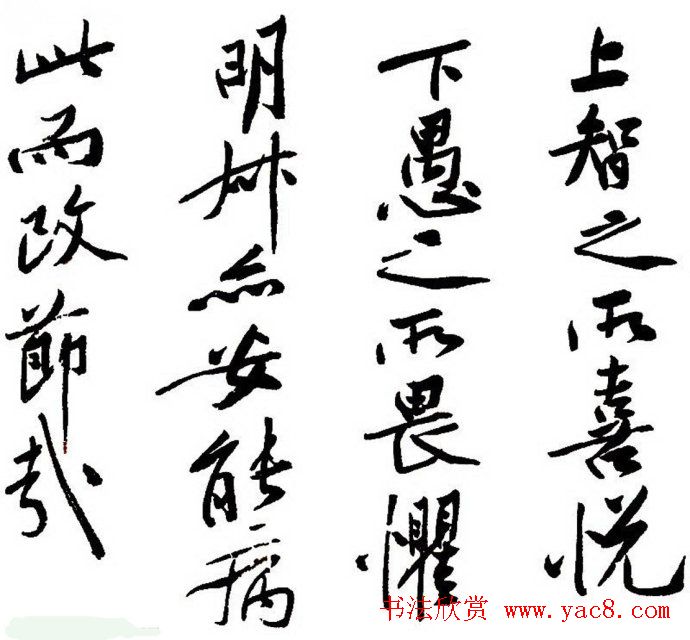 上智之所喜悦
下愚之所畏惧
明叔亦安能病
此而改節哉
书法欣赏 www.yac8.com